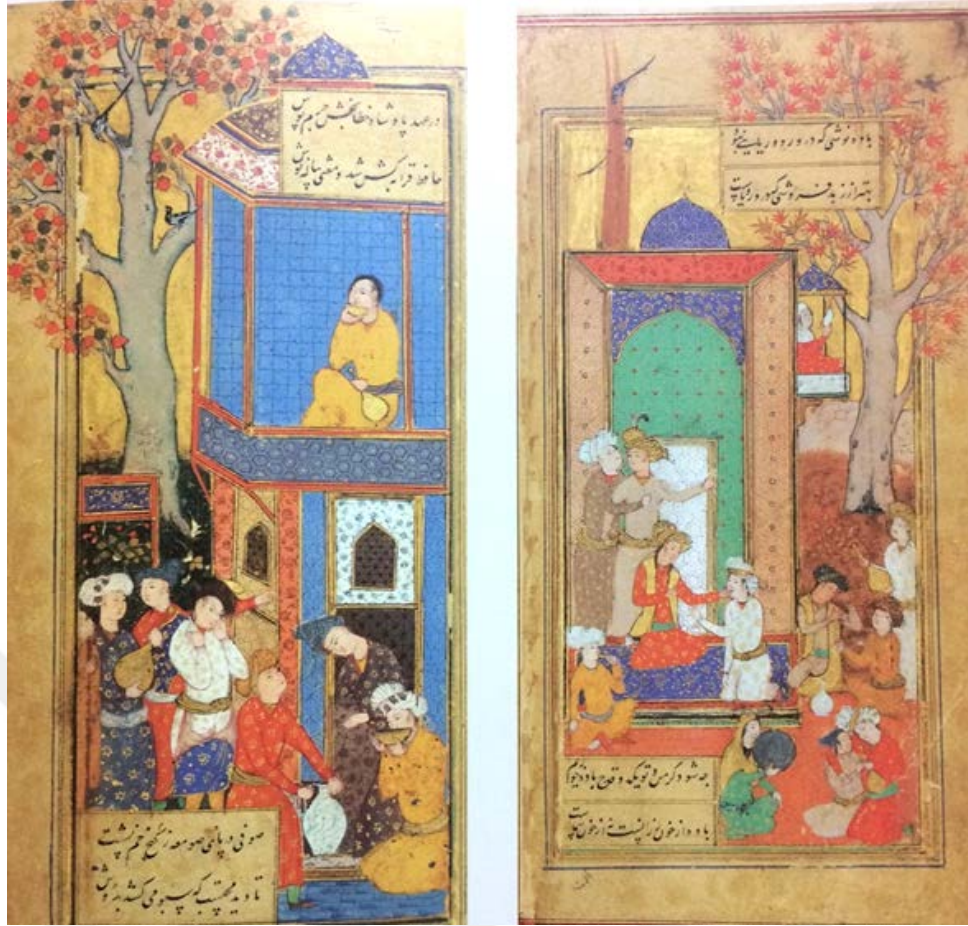 در عهد پادشاه خطابخش جرم پوش
حافظ قرابه کش شد و مفتی پیاله نوش
صوفی ز پای صومعه با پای خم نشست
تا دید محتسب که سبو می کشد به دوش
باده نوشی که در و روی ریایی نبود
بهتر از زهد فروشی که در و روی ریاست
چه شود گر من و تو یک دو قدح باده خوریم
باده از خون رزانست نه از خون شماست